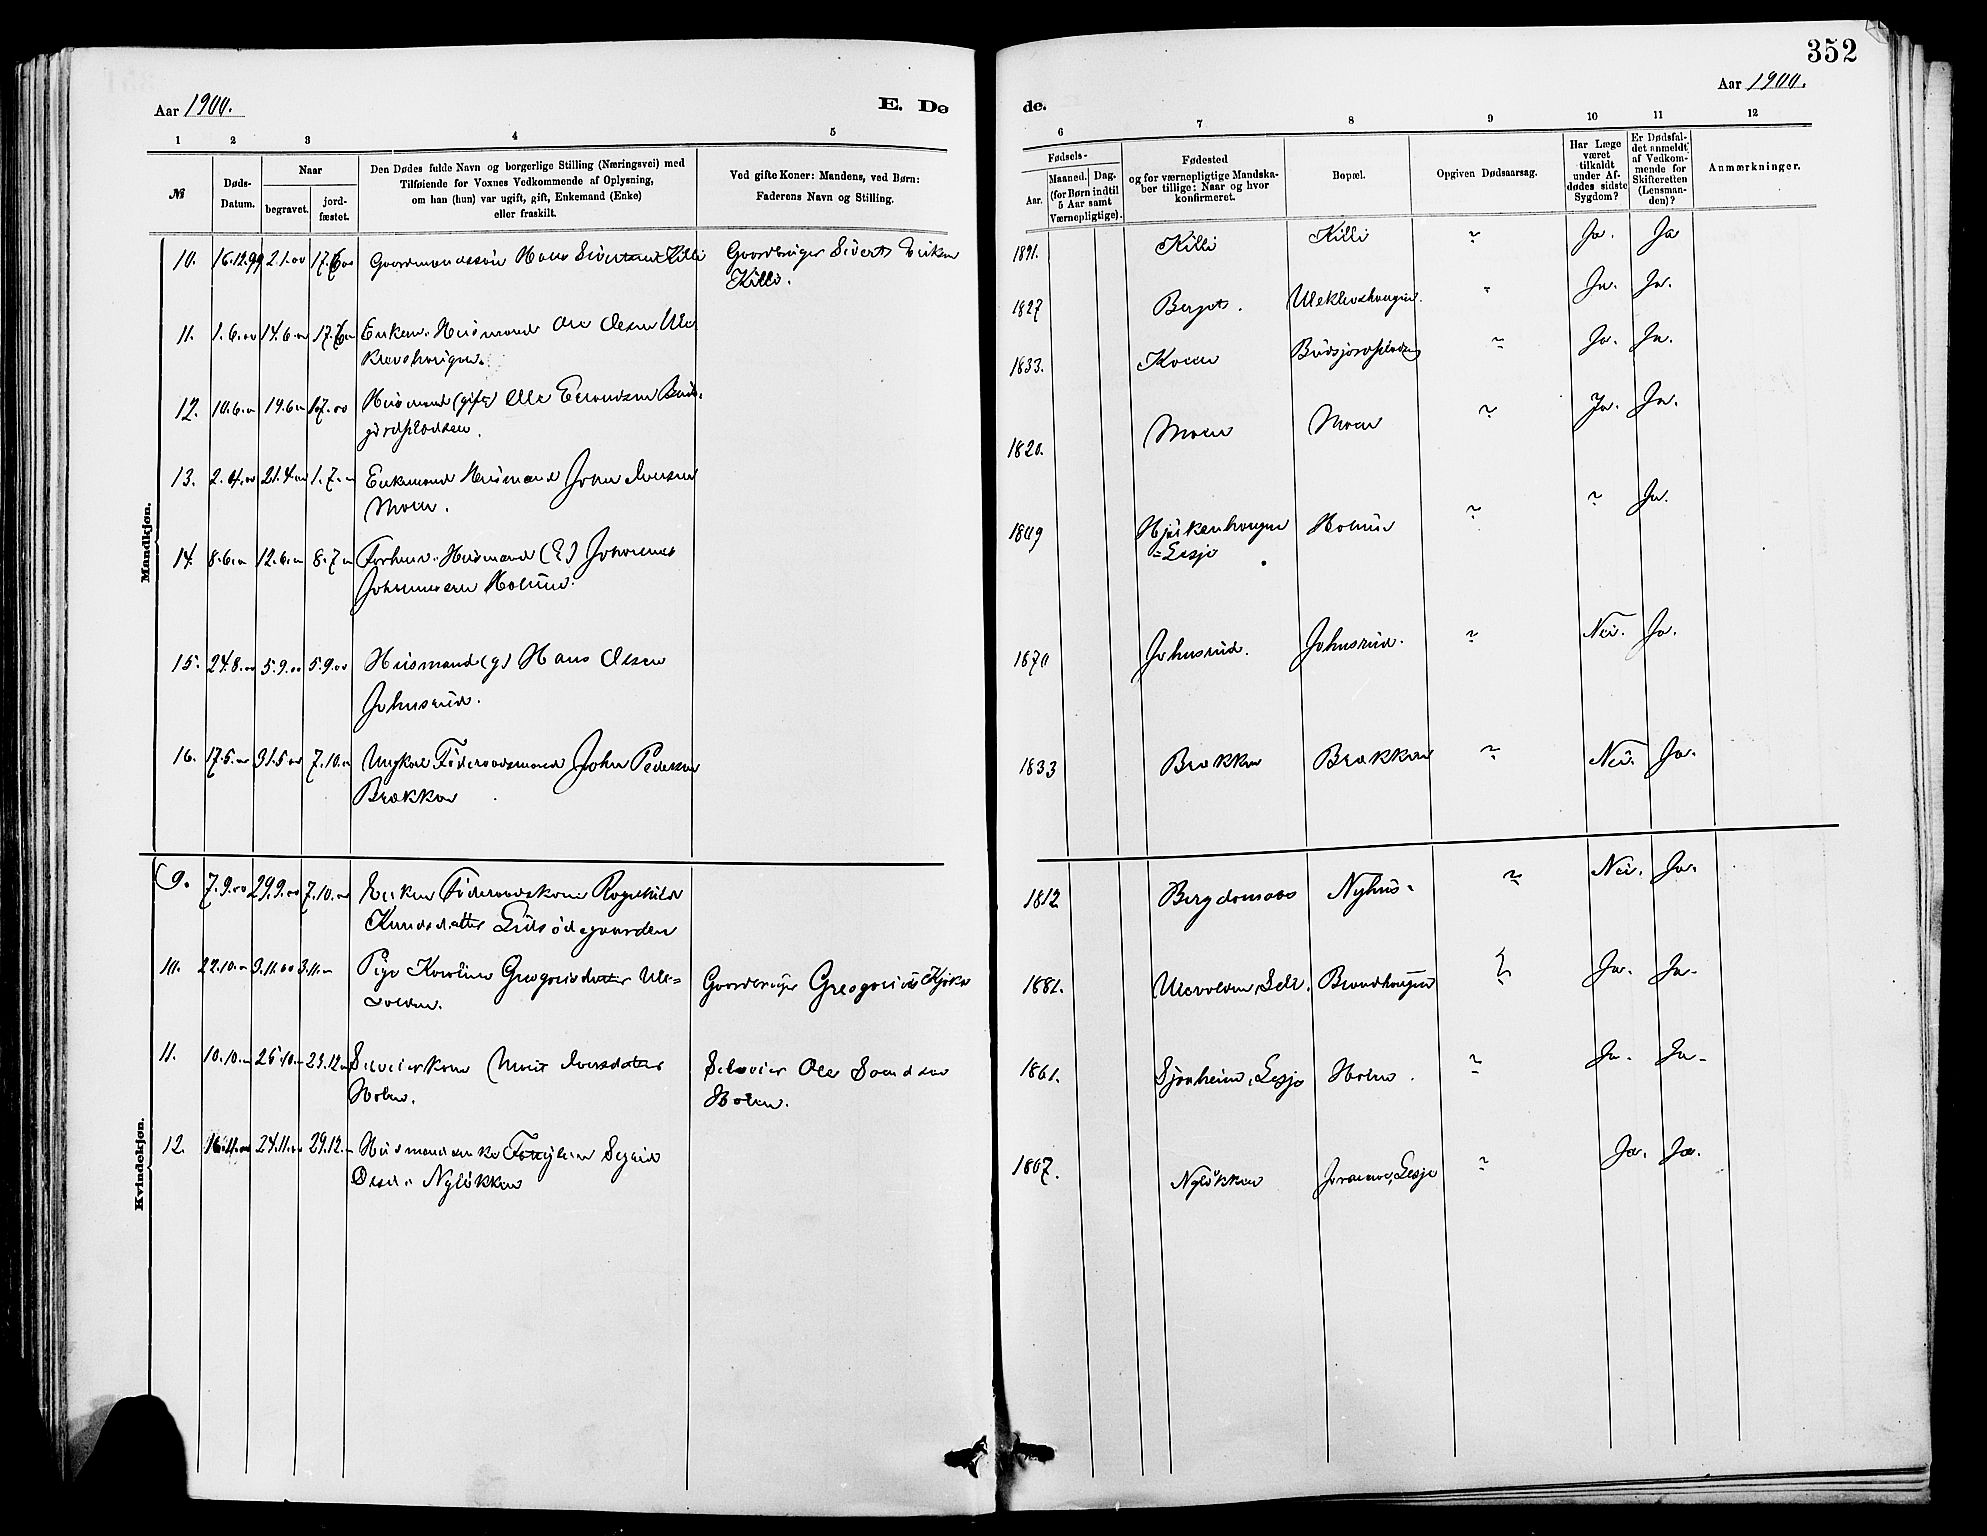 352
Aar 1900.
E. Dø
de.
Aar 1900.
1 2 3 4 5
6 7 8 9 10 11 12
№
Døds-
Datum.
Naar
begravet.
jord-
fæstet.
Den Dødes fulde Navn og borgerlige Stilling (Næringsvei) med
Tilføiende for Voxnes Vedkommende af Oplysning,
om han (hun) var ugift, gift, Enkemand (Enke)
eller fraskilt.
Ved gifte Koner: Mandens, ved Børn:
Faderens Navn og Stilling.
Fødsels-
Aar.
Maaned. Dag.
(for Børn indtil
5 Aar samt
Værnepligtige).
Fødested
og for værnepligtige Mandska-
ber tillige: Naar og hvor
konfirmeret.
Bopæl.
Opgiven Dødsaarsag.
Har Læge
været
tilkaldt
under Af-
dødes sidste
Sygdom?
Er Dødsfal-
det anmeldt
af Vedkom-
mende for
Skifteretten
(Lensman-
den)?
Anmærkninger.
Mandkjøn.
10. 16.12.99 2.1.00 17.6.00 Gaardmandssøn Hans Sivertsen Killi Gaardbruger Sivert Eriksen
Killi.
1891. Killi Killi ~ Ja. Ja
11. 1.6.00 14.6.00 17.6.00 Enkem. Husmand Ole Olsen Ule
kleivshaugen.
1827 Ja. Ja.
12. 10.6.00 19.6.00 1.7.00 Husmand (gift) Ole
1833. ~ Ja. Ja.
13. 2.4.00 21.4.00 1.7.00 Enkemand Husmand John Iversen
Moen.
1820. Moen Moen ~ Ja. Ja.
14. 8.6.00 12.6.00 8.7.00 Forhen. Husmand (E) Johannes
Johannesen
1849 = Lesje ~ ~ Ja.
15. 24.8.00 5.9.00 5.9.00 Husmand (g) Hans Olsen
Johnsrud.
1870 Johnsrud. Johnsrud. ~ Nei. Ja.
16. 17.5.00 31.5.00 7.10.00 Ungkarl Føderaadsmand John Pedersen
Brækken
1833 Brækken Brækken ~ Nei. Ja.
Kvindekjøn.
9. 7.9.00 29.9.00 7.10.00 Enken Føderaadskone Ragnhild
Knudsdatter
1812 Nyhus. ~ Nei. Ja.
10. 22.10.00 3.11.00 3.11.00 Pige Karoline Gregoriusdatter Ule-
volden. Gaardbruger Gregorius
1881. Ulevolden, Brændhaugen Ja. Ja.
11. 10.10.00 26.10.00 23.12.00 Selveierkone Marit Iversdatter
Holen. Selveier Ole
Holen.
1861. Lesje Holen. ~ Ja. Ja.
12. 16.11.00 24.11.00 29.12.00 Husmandsenke Sigrid
Olsd. Nyløkken
1807. Nyløkken Joramo, Lesje ~ Ja. Ja.